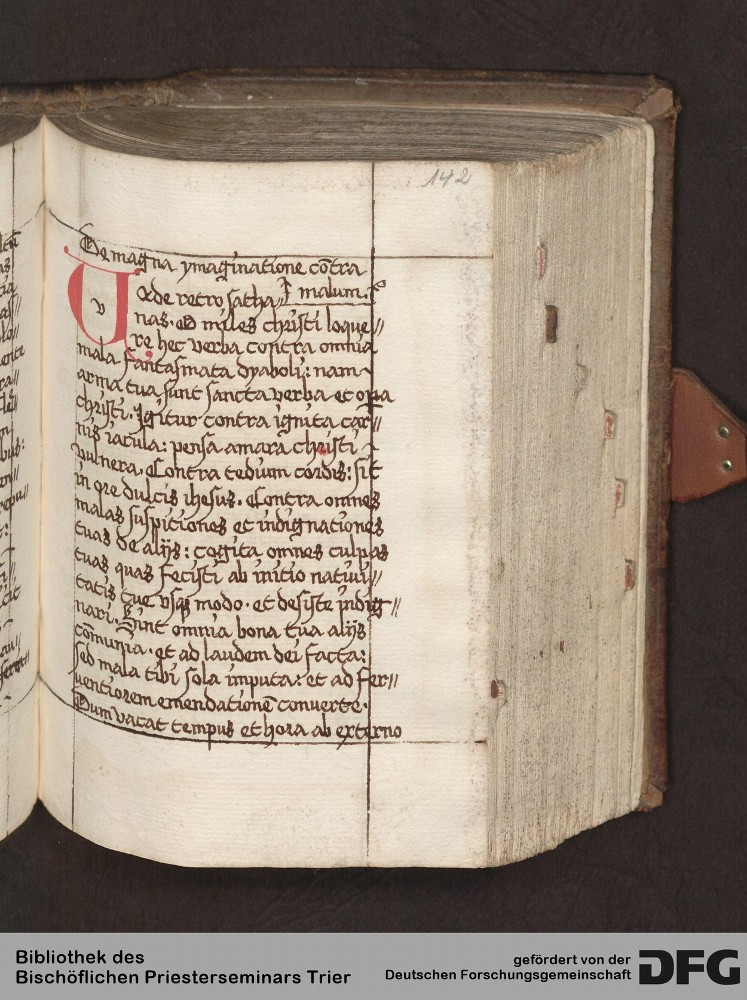 142
De magna ymaginatione cōtra
malum.
Vade retro satha//
nas. O miles christi loque//
re hec verba contra omnia
mala fantasmata dyaboli: nam
arma tua sunt sancta verba et opa
christi. Igitur contra ignita car//
nis iacula: pensa amara christi
vulnera. Contra tedium cordis: sit
in ore dulcis ihesus. Contra omnes
malas suspitiones et indignationes
tuas de alijs: cogita omnes culpas
tuas quas fecisti ab initio natiui//
tatis tue vsq modo. et desiste indig//
nari. Sint omnia bona tua alijs
cōmunia. et ad laudem dei facta:
sed mala tibi sola imputa: et ad fer//
uentiorem emendationē conuerte.
Dum vacat tempus et hora ab externo
Bibliothek des
Bischöflichen Priesterseminars Trier
gefördert von der
Deutschen Forschungsgemeinschaft
DFG